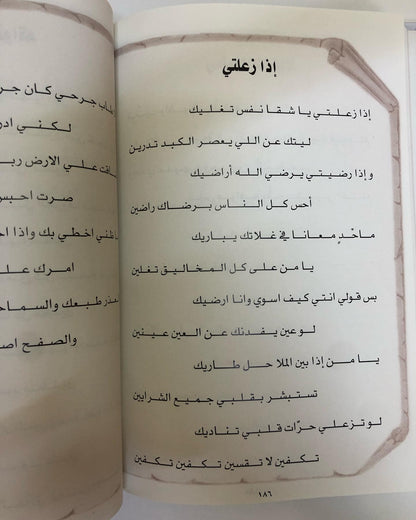 إذا زعلتي
إذا زعلتي يا شقا نفس تغليك
ليتك عن اللي يعصر الكبد تدرين
وإذا رضيتي يرضي الله أراضيك
أحس كل الناس برضاك راضين
ماحدٍ معانا في غلاتك يباريك
يا من على كل المخاليق تغلين
بس قولي انتي كيف اسوي وانا ارضيك
لو عين يفدنك عن العين عينين
يا من إذا بين الملا حل طاريك
تستبشر بقلبي جميع الشرايين
لو تزعلي حرّات قلبي تناديك
تكفين لا تقسين تكفين تكفين
١٨٦
جرحي كان
لكني
علي الارض
صرت احبس
اخطي بك واذا
امرك
طبعك والسماح
والصفح